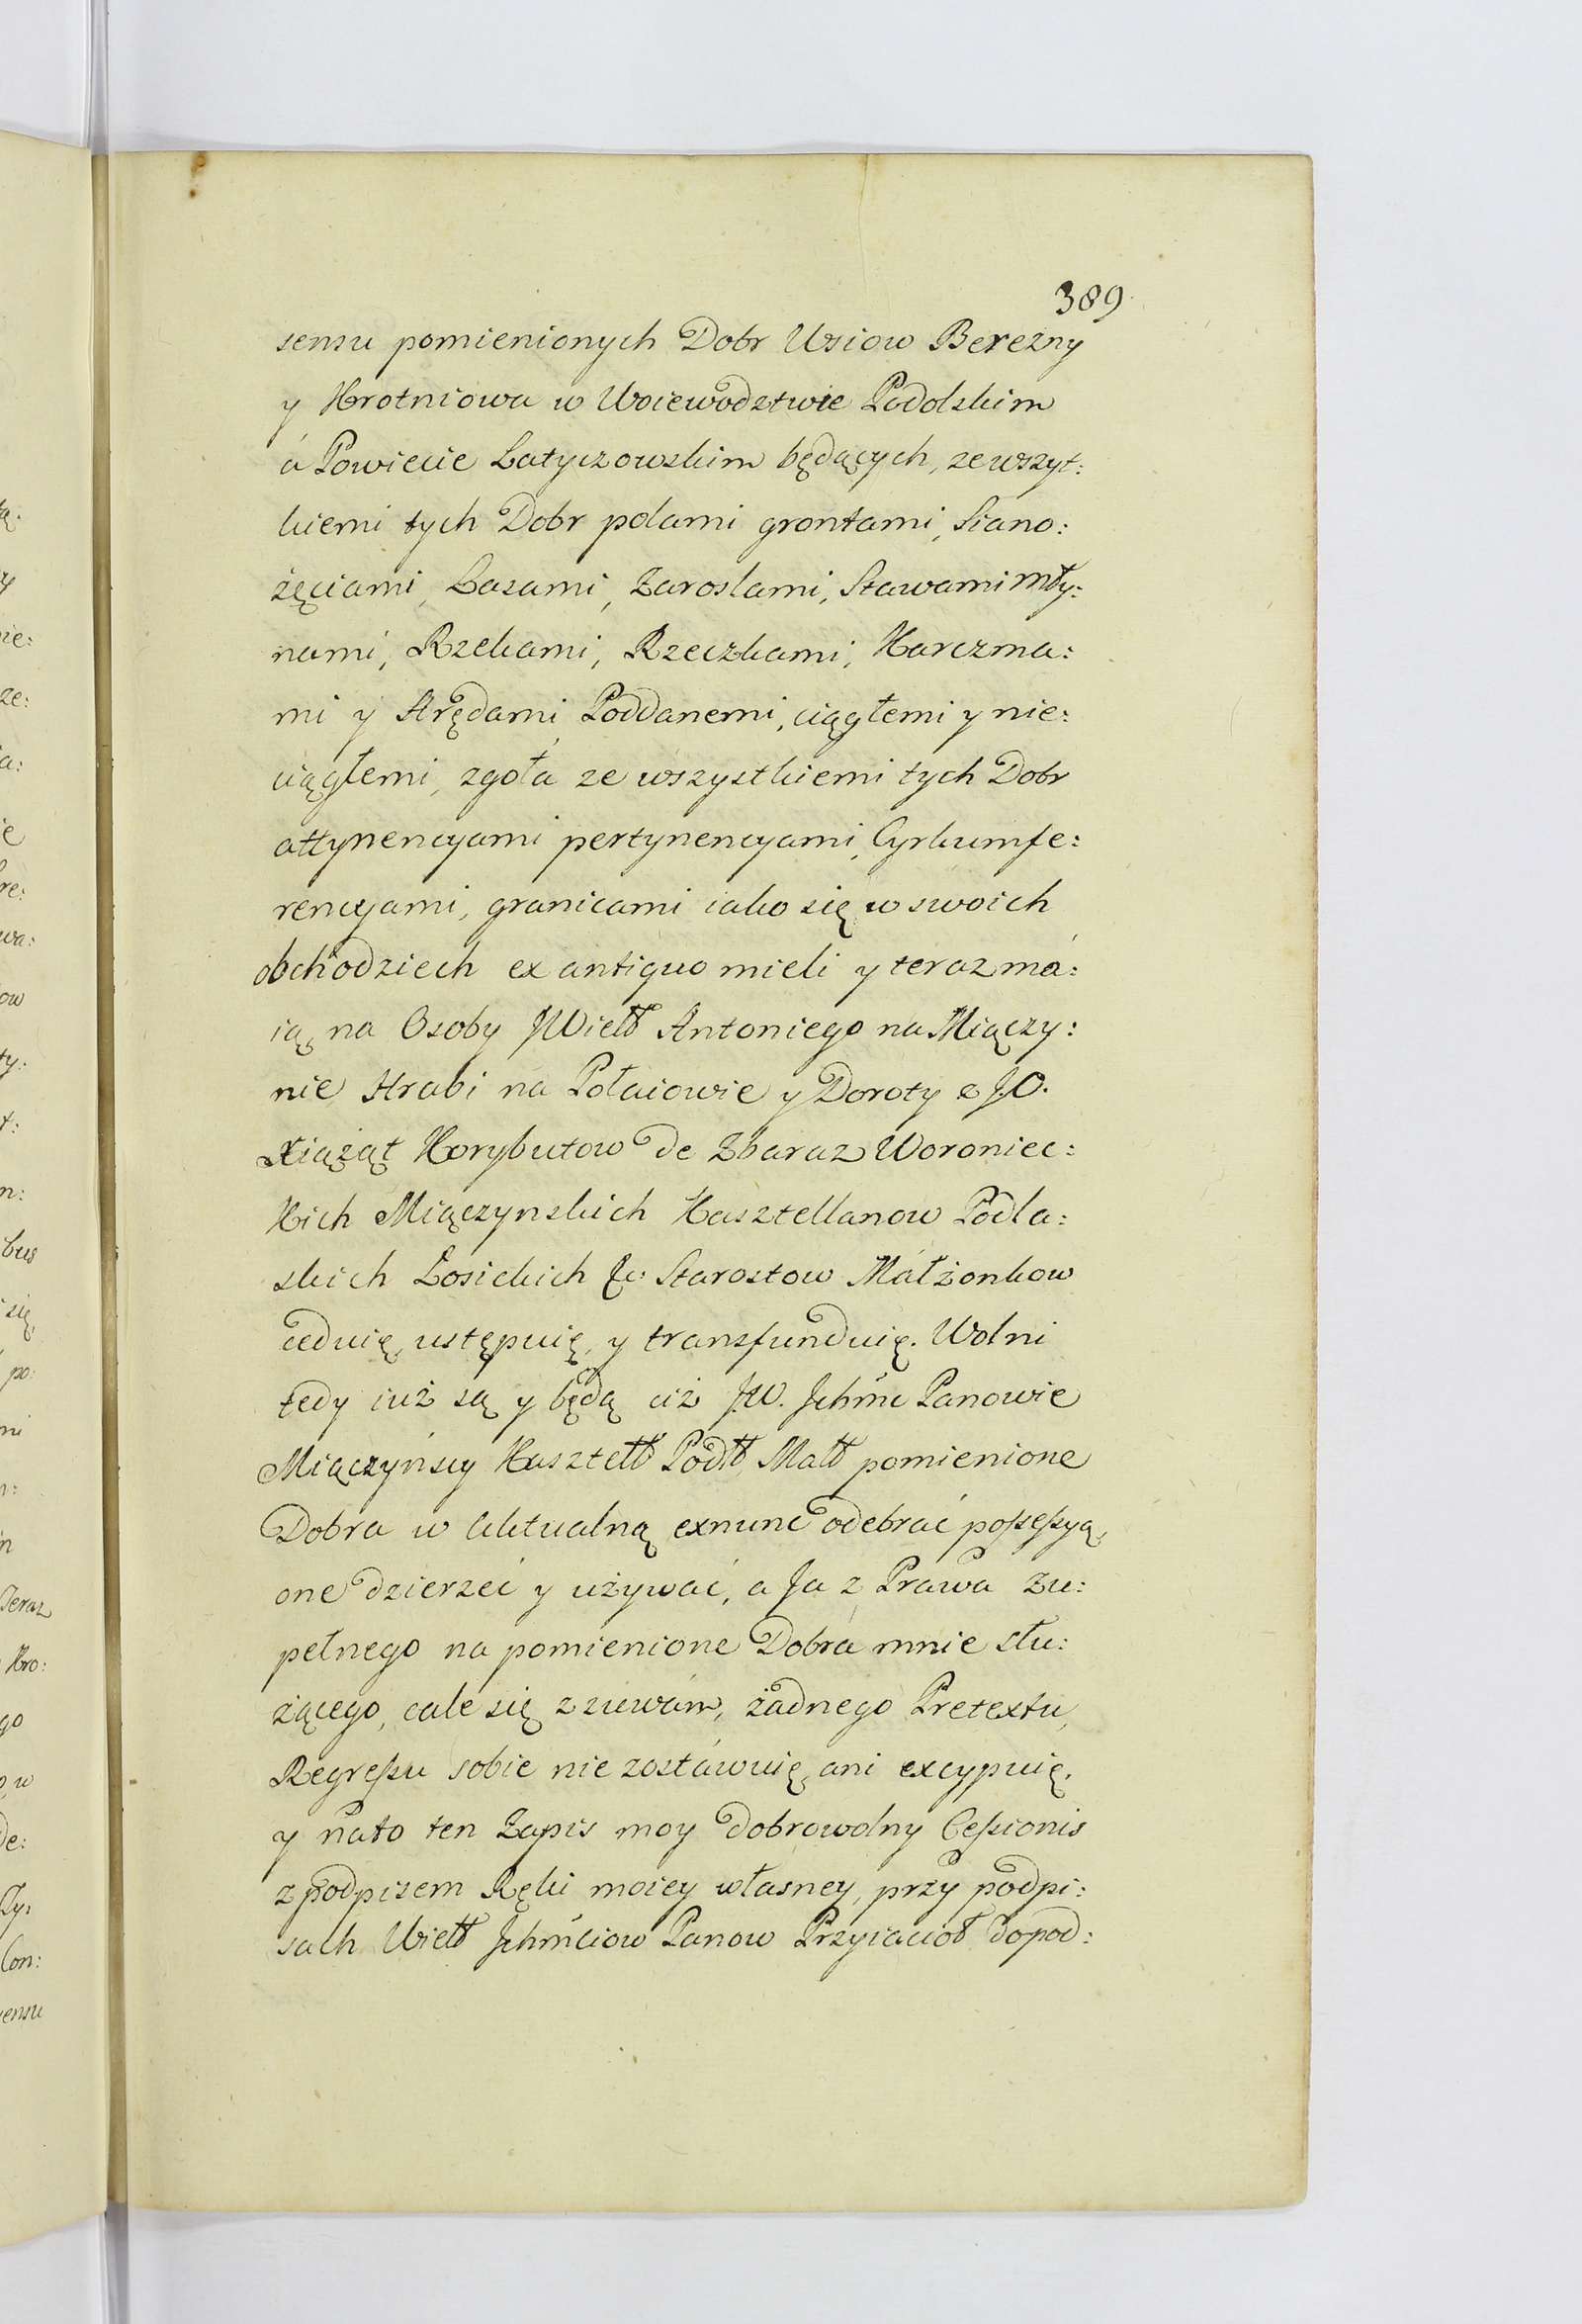 389
sensu pomienionych Dobr Wsiow Bereżny
y Krotniowa w Woiewodztwie Podolskim
á Powiecie Latyczowskim będących, ze wszyt:
kiemi tych Dobr polami grontami, Siano:
żęciami, Lasami, Zaroslami, Stawami Mły:
nami, Rzekami, Rzeczkami, Karczma:
mi y Arędami, Poddanemi, ciągłemi y nie:
ciągłemi, zgoła ze wszystkiemi tych Dobr
attynencyami pertynencyami, Cyrkumfe:
rencyami, granicami iako się w swoich
obchodziech ex antiquo mieli y teraz má:
ią, na Osoby JWielł Antoniego na Miączy:
nie Hrabi na Połaiowie y Doroty z J.O.
Xiążąt Korybutow de Zbaraz Woroniec:
Kich Miączynskich Kasztellanow Podla:
skich Łosickich &c: Starostow Małżonkow
ceduię, ustępuię, y transfunduię. Wolni
tedy iuż są y będą ciż J.W. Jchmc Panowie
Miączyńscy Kasztełł Podłł Małł pomienione
Dobra w Aktualną exnunc odebrać possessyą,
one dzierzeć y używać, a Ja z Prawa Zu:
pełnego na pomienione Dobra mnie słu:
żącego, cale się zzuwam, żadnego Pretextu,
Regressu sobie nie zostáwuię, ani excypuię.
y náto ten Zapis moy dobrowolny Cessionis
z podpisem Ręki moiey własney, przy podpi:
sach Wielł Jchmciow Panow Przyiacioł do pod: